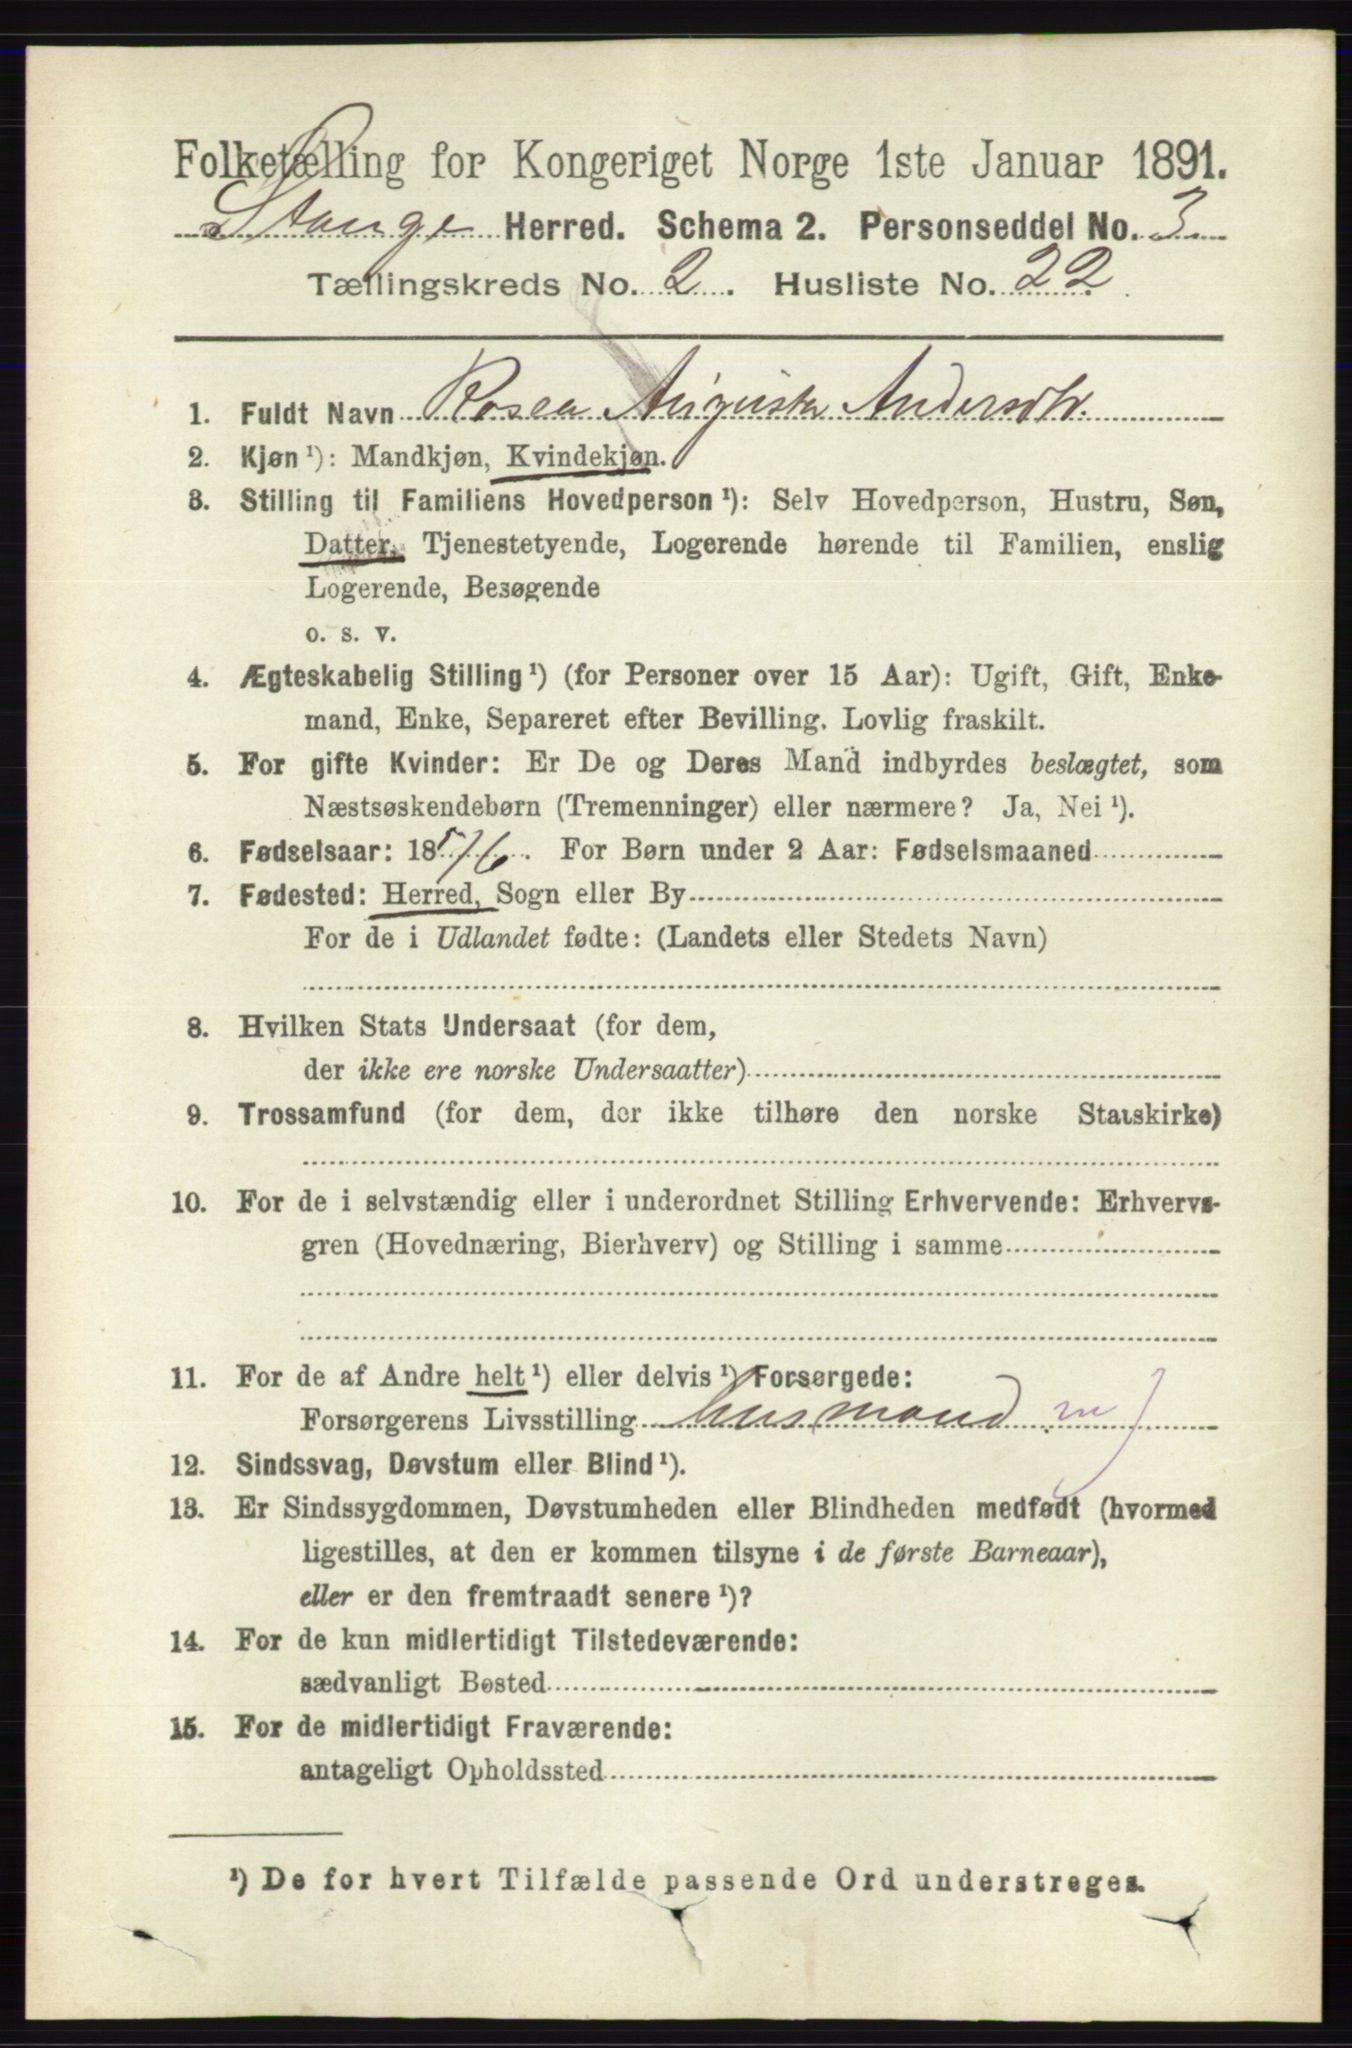 Folketælling for Kongeriget Norge 1ste Januar 1891.
Stange Herred. Schema 2. Personseddel No. 3
Tællingskreds No. 2. Husliste No. 22.
1. Fuldt Navn Rosea Augusta Andersdtr.
2. Kjøn ¹): Mandkjøn, Kvindekjøn.
3. Stilling til Familiens Hovedperson ¹): Selv Hovedperson, Hustru, Søn,
Datter, Tjenestetyende, Logerende hørende til Familien, enslig
Logerende, Besøgende
o. s. v.
4. Ægteskabelig Stilling ¹) (for Personer over 15 Aar): Ugift, Gift, Enke-
mand, Enke, Separeret efter Bevilling. Lovlig fraskilt.
5. For gifte Kvinder: Er De og Deres Mand indbyrdes beslægtet, som
Næstsøskendebørn (Tremenninger) eller nærmere? Ja, Nei ¹).
6. Fødselsaar: 1876. For Børn under 2 Aar: Fødselsmaaned
7. Fødested: Herred, Sogn eller By
For de i Udlandet fødte: (Landets eller Stedets Navn)
8. Hvilken Stats Undersaat (for dem,
der ikke ere norske Undersaatter)
9. Trossamfund (for dem, der ikke tilhøre den norske Statskirke)
10. For de i selvstændig eller i underordnet Stilling Erhvervende: Erhvervs-
gren (Hovednæring, Bierhverv) og Stilling i samme
11. For de af Andre helt ¹) eller delvis ¹) Forsørgede:
Forsørgerens Livsstilling husmand m J
12. Sindssvag, Døvstum eller Blind ¹).
13. Er Sindssygdommen, Døvstumheden eller Blindheden medfødt (hvormed
ligestilles, at den er kommen tilsyne i de første Barneaar),
eller er den fremtraadt senere ¹)?
14. For de kun midlertidigt Tilstedeværende:
sædvanligt Bosted
15. For de midlertidigt Fraværende:
antageligt Opholdssted
¹) De for hvert Tilfælde passende Ord understreges.